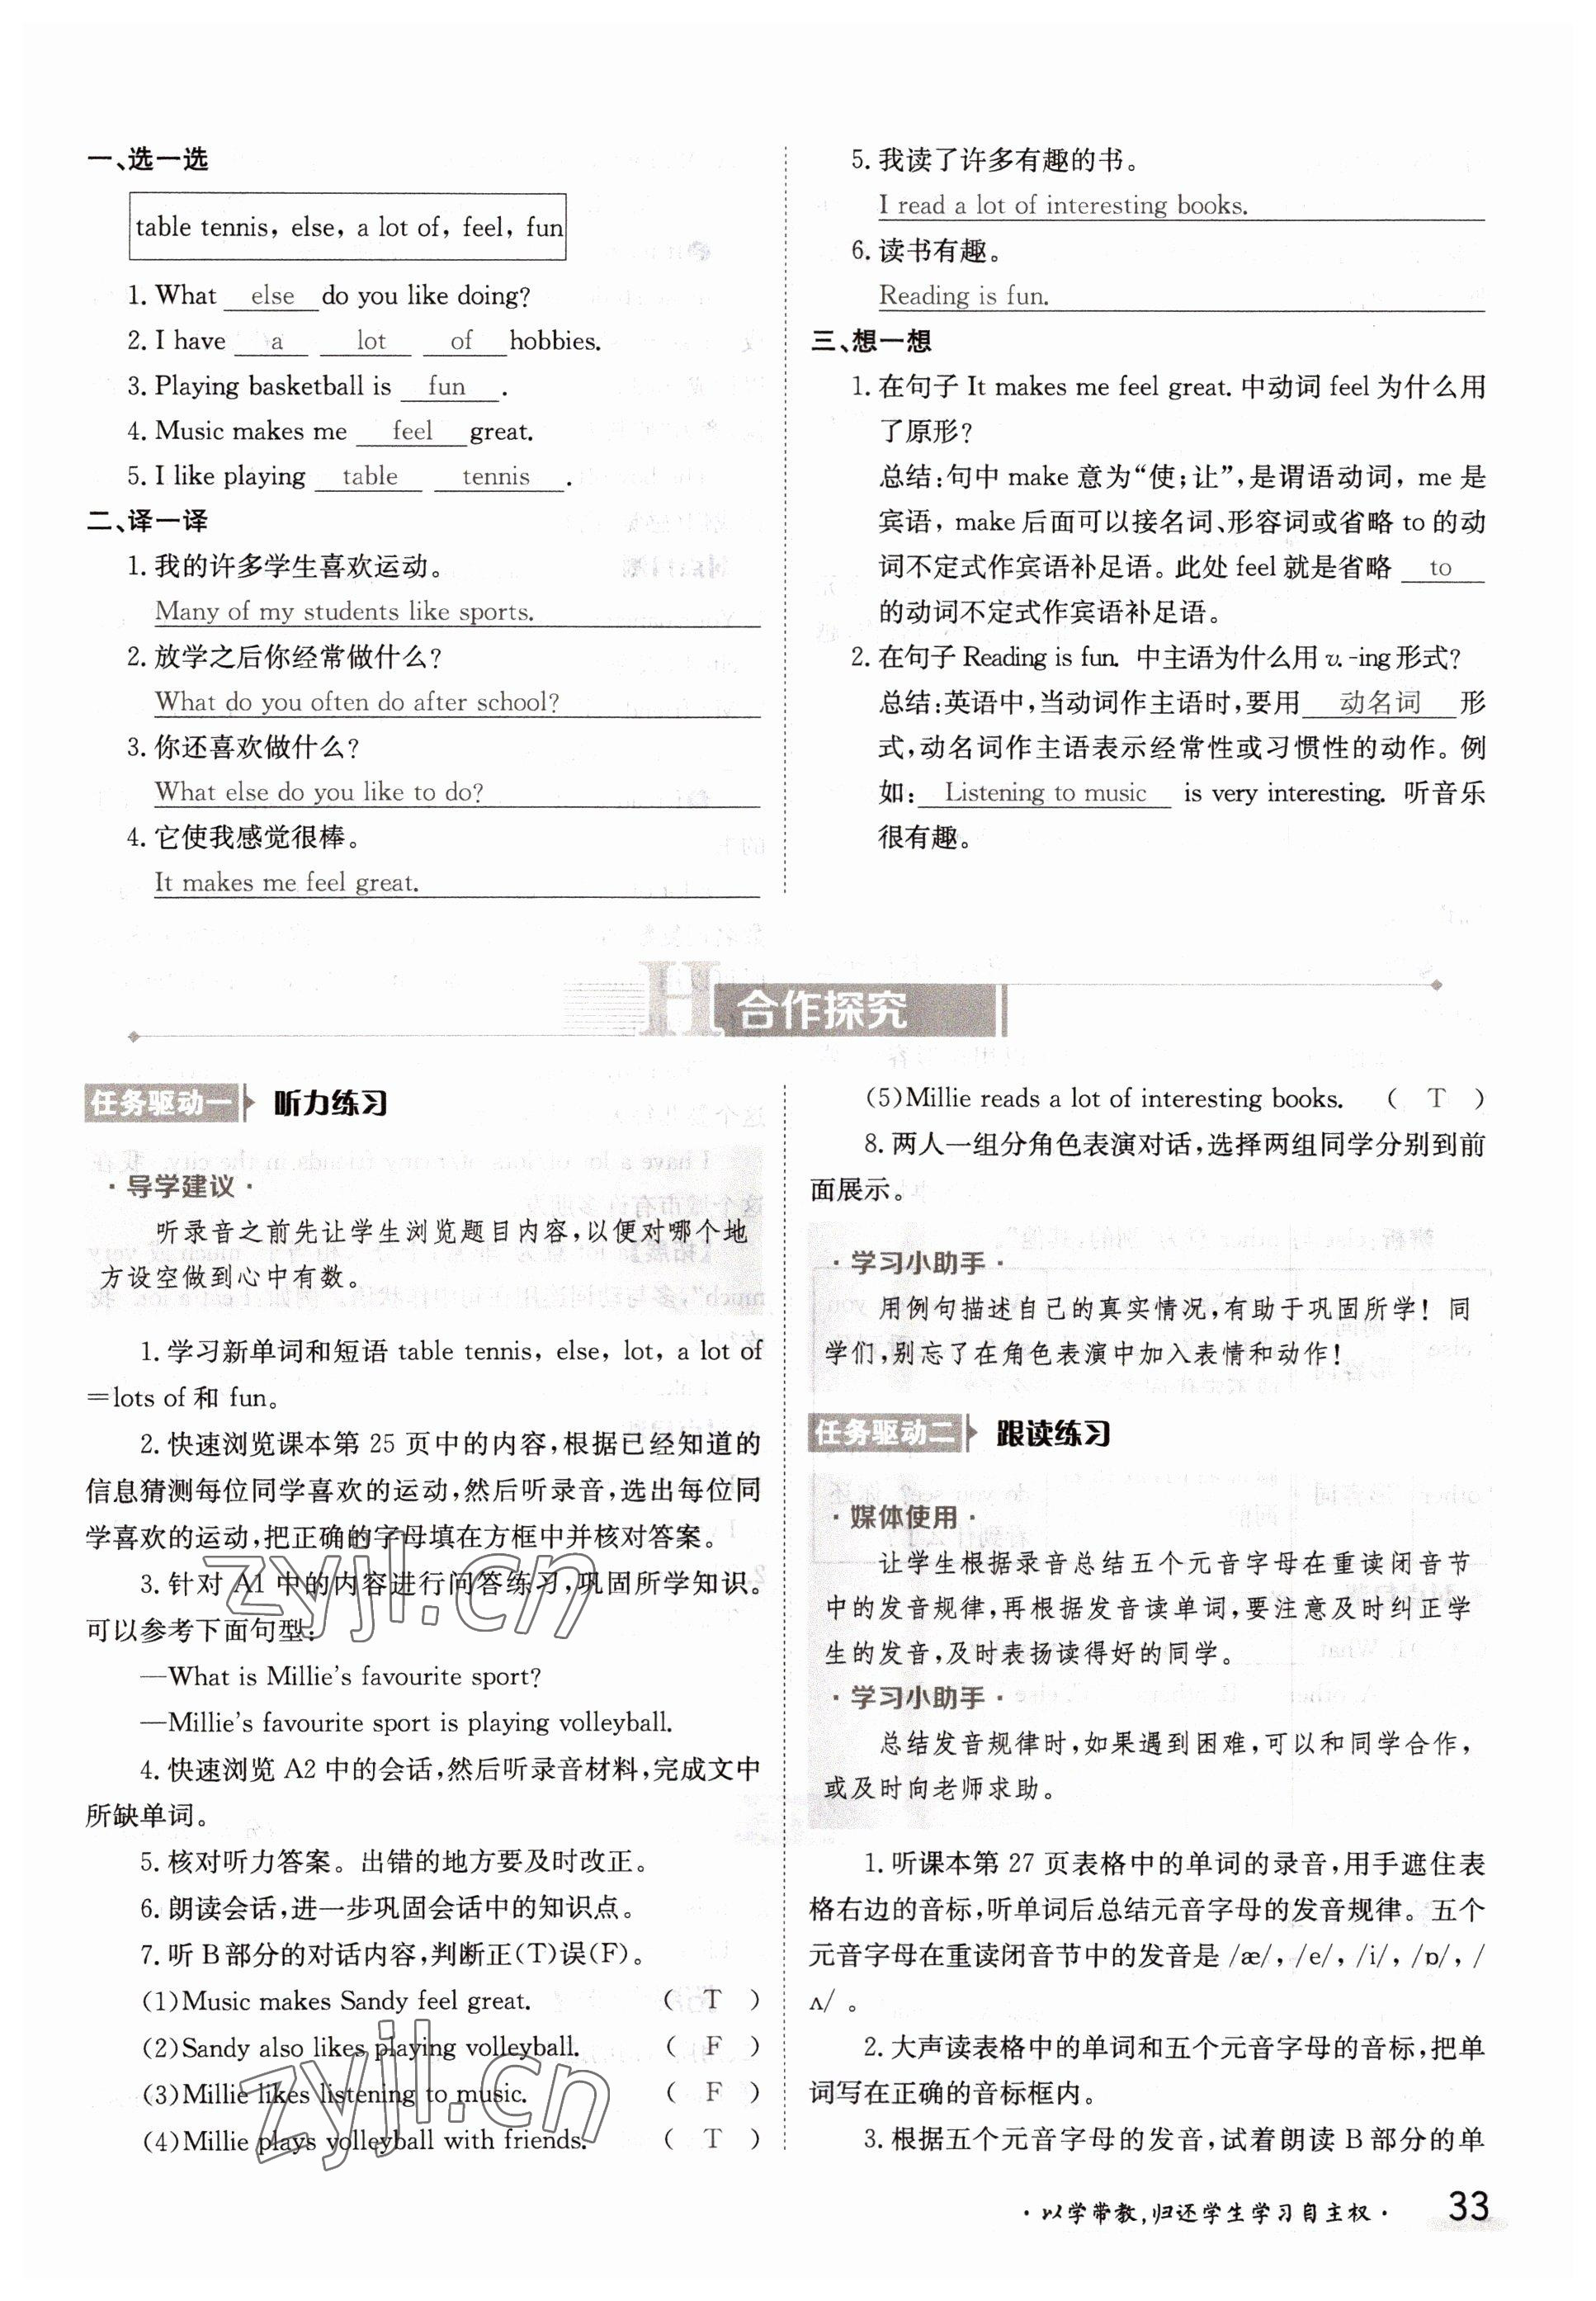 一、选一选
table tennis, else, a lot of, feel, fun
1. What else do you like doing?
2. I have a lot of hobbies.
3. Playing basketball is fun.
4. Music makes me feel great.
5. I like playing table tennis.
二、译一译
1. 我的许多学生喜欢运动。
Many of my students like sports.
2. 放学之后你经常做什么?
What do you often do after school?
3. 你还喜欢做什么?
What else do you like to do?
4. 它使我感觉很棒。
It makes me feel great.
5. 我读了许多有趣的书。
I read a lot of interesting books.
6. 读书有趣。
Reading is fun.
三、想一想
1. 在句子 It makes me feel great. 中动词 feel 为什么用
了原形?
总结:句中 make 意为“使;让”,是谓语动词, me 是
宾语, make 后面可以接名词、形容词或省略 to 的动
词不定式作宾语补足语。此处 feel 就是省略 to
的动词不定式作宾语补足语。
2. 在句子 Reading is fun. 中主语为什么用 v. -ing 形式?
总结:英语中,当动词作主语时,要用 动名词 形
式,动名词作主语表示经常性或习惯性的动作。例
如: Listening to music is very interesting. 听音乐
很有趣。
H 合作探究
任务驱动一 听力练习
·导学建议·
听录音之前先让学生浏览题目内容,以便对哪个地
方设空做到心中有数。
1. 学习新单词和短语 table tennis, else, lot, a lot of
=lots of 和 fun。
2. 快速浏览课本第 25 页中的内容,根据已经知道的
信息猜测每位同学喜欢的运动,然后听录音,选出每位同
学喜欢的运动,把正确的字母填在方框中并核对答案。
3. 针对 A1 中的内容进行问答练习,巩固所学知识。
可以参考下面句型:
—What is Millie's favourite sport?
—Millie's favourite sport is playing volleyball.
4. 快速浏览 A2 中的会话,然后听录音材料,完成文中
所缺单词。
5. 核对听力答案。出错的地方要及时改正。
6. 朗读会话,进一步巩固会话中的知识点。
7. 听 B 部分的对话内容,判断正(T)误(F)。
(1)Music makes Sandy feel great. ( T )
(2)Sandy also likes playing volleyball. ( F )
(3)Millie likes listening to music. ( F )
(4)Millie plays volleyball with friends. ( T )
(5)Millie reads a lot of interesting books. ( T )
8. 两人一组分角色表演对话,选择两组同学分别到前
面展示。
·学习小助手·
用例句描述自己的真实情况,有助于巩固所学!同
学们,别忘了在角色表演中加入表情和动作!
任务驱动二 跟读练习
·媒体使用·
让学生根据录音总结五个元音字母在重读闭音节
中的发音规律,再根据发音读单词,要注意及时纠正学
生的发音,及时表扬读得好的同学。
·学习小助手·
总结发音规律时,如果遇到困难,可以和同学合作,
或及时向老师求助。
1. 听课本第 27 页表格中的单词的录音,用手遮住表
格右边的音标,听单词后总结元音字母的发音规律。五个
元音字母在重读闭音节中的发音是 /æ/, /e/, /i/, /ɒ/, /
ʌ/ 。
2. 大声读表格中的单词和五个元音字母的音标,把单
词写在正确的音标框内。
3. 根据五个元音字母的发音,试着朗读 B 部分的单
zyjl.cn
zyjl.cn
·以学带教,归还学生学习自主权·
33